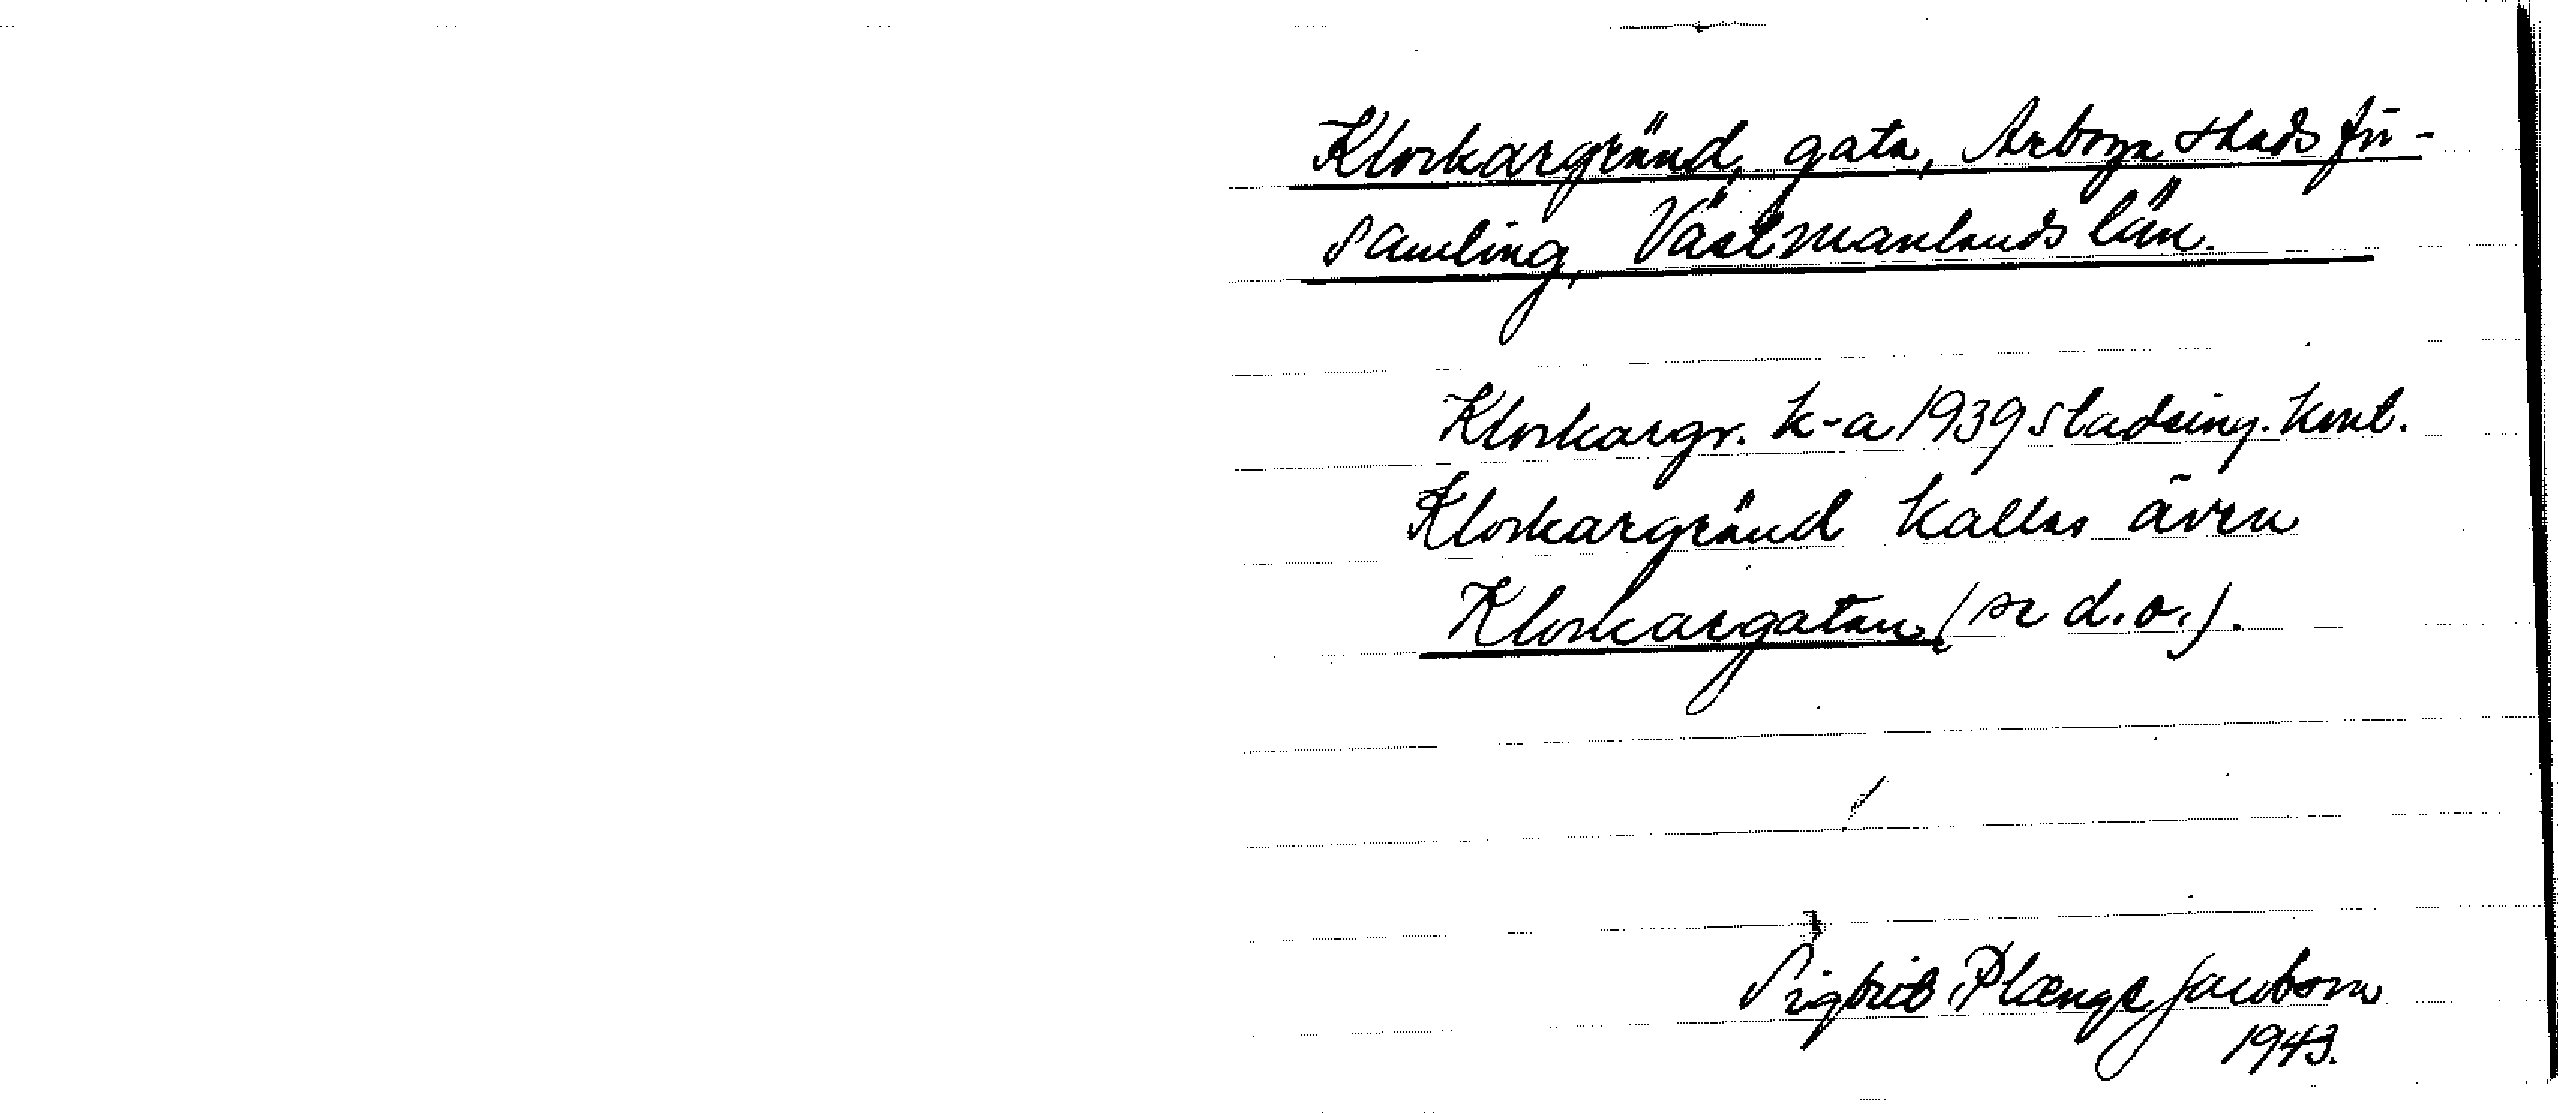 Klockargränd, gata, Arboga stadsför-
samling, Västmanlands län.
Klockargr. k-a 1939 Stadsing. kont.
Klockargränd kallas även
Klockargatan (se d.o.).
Sigbrit Plænge Jacobson
1943.